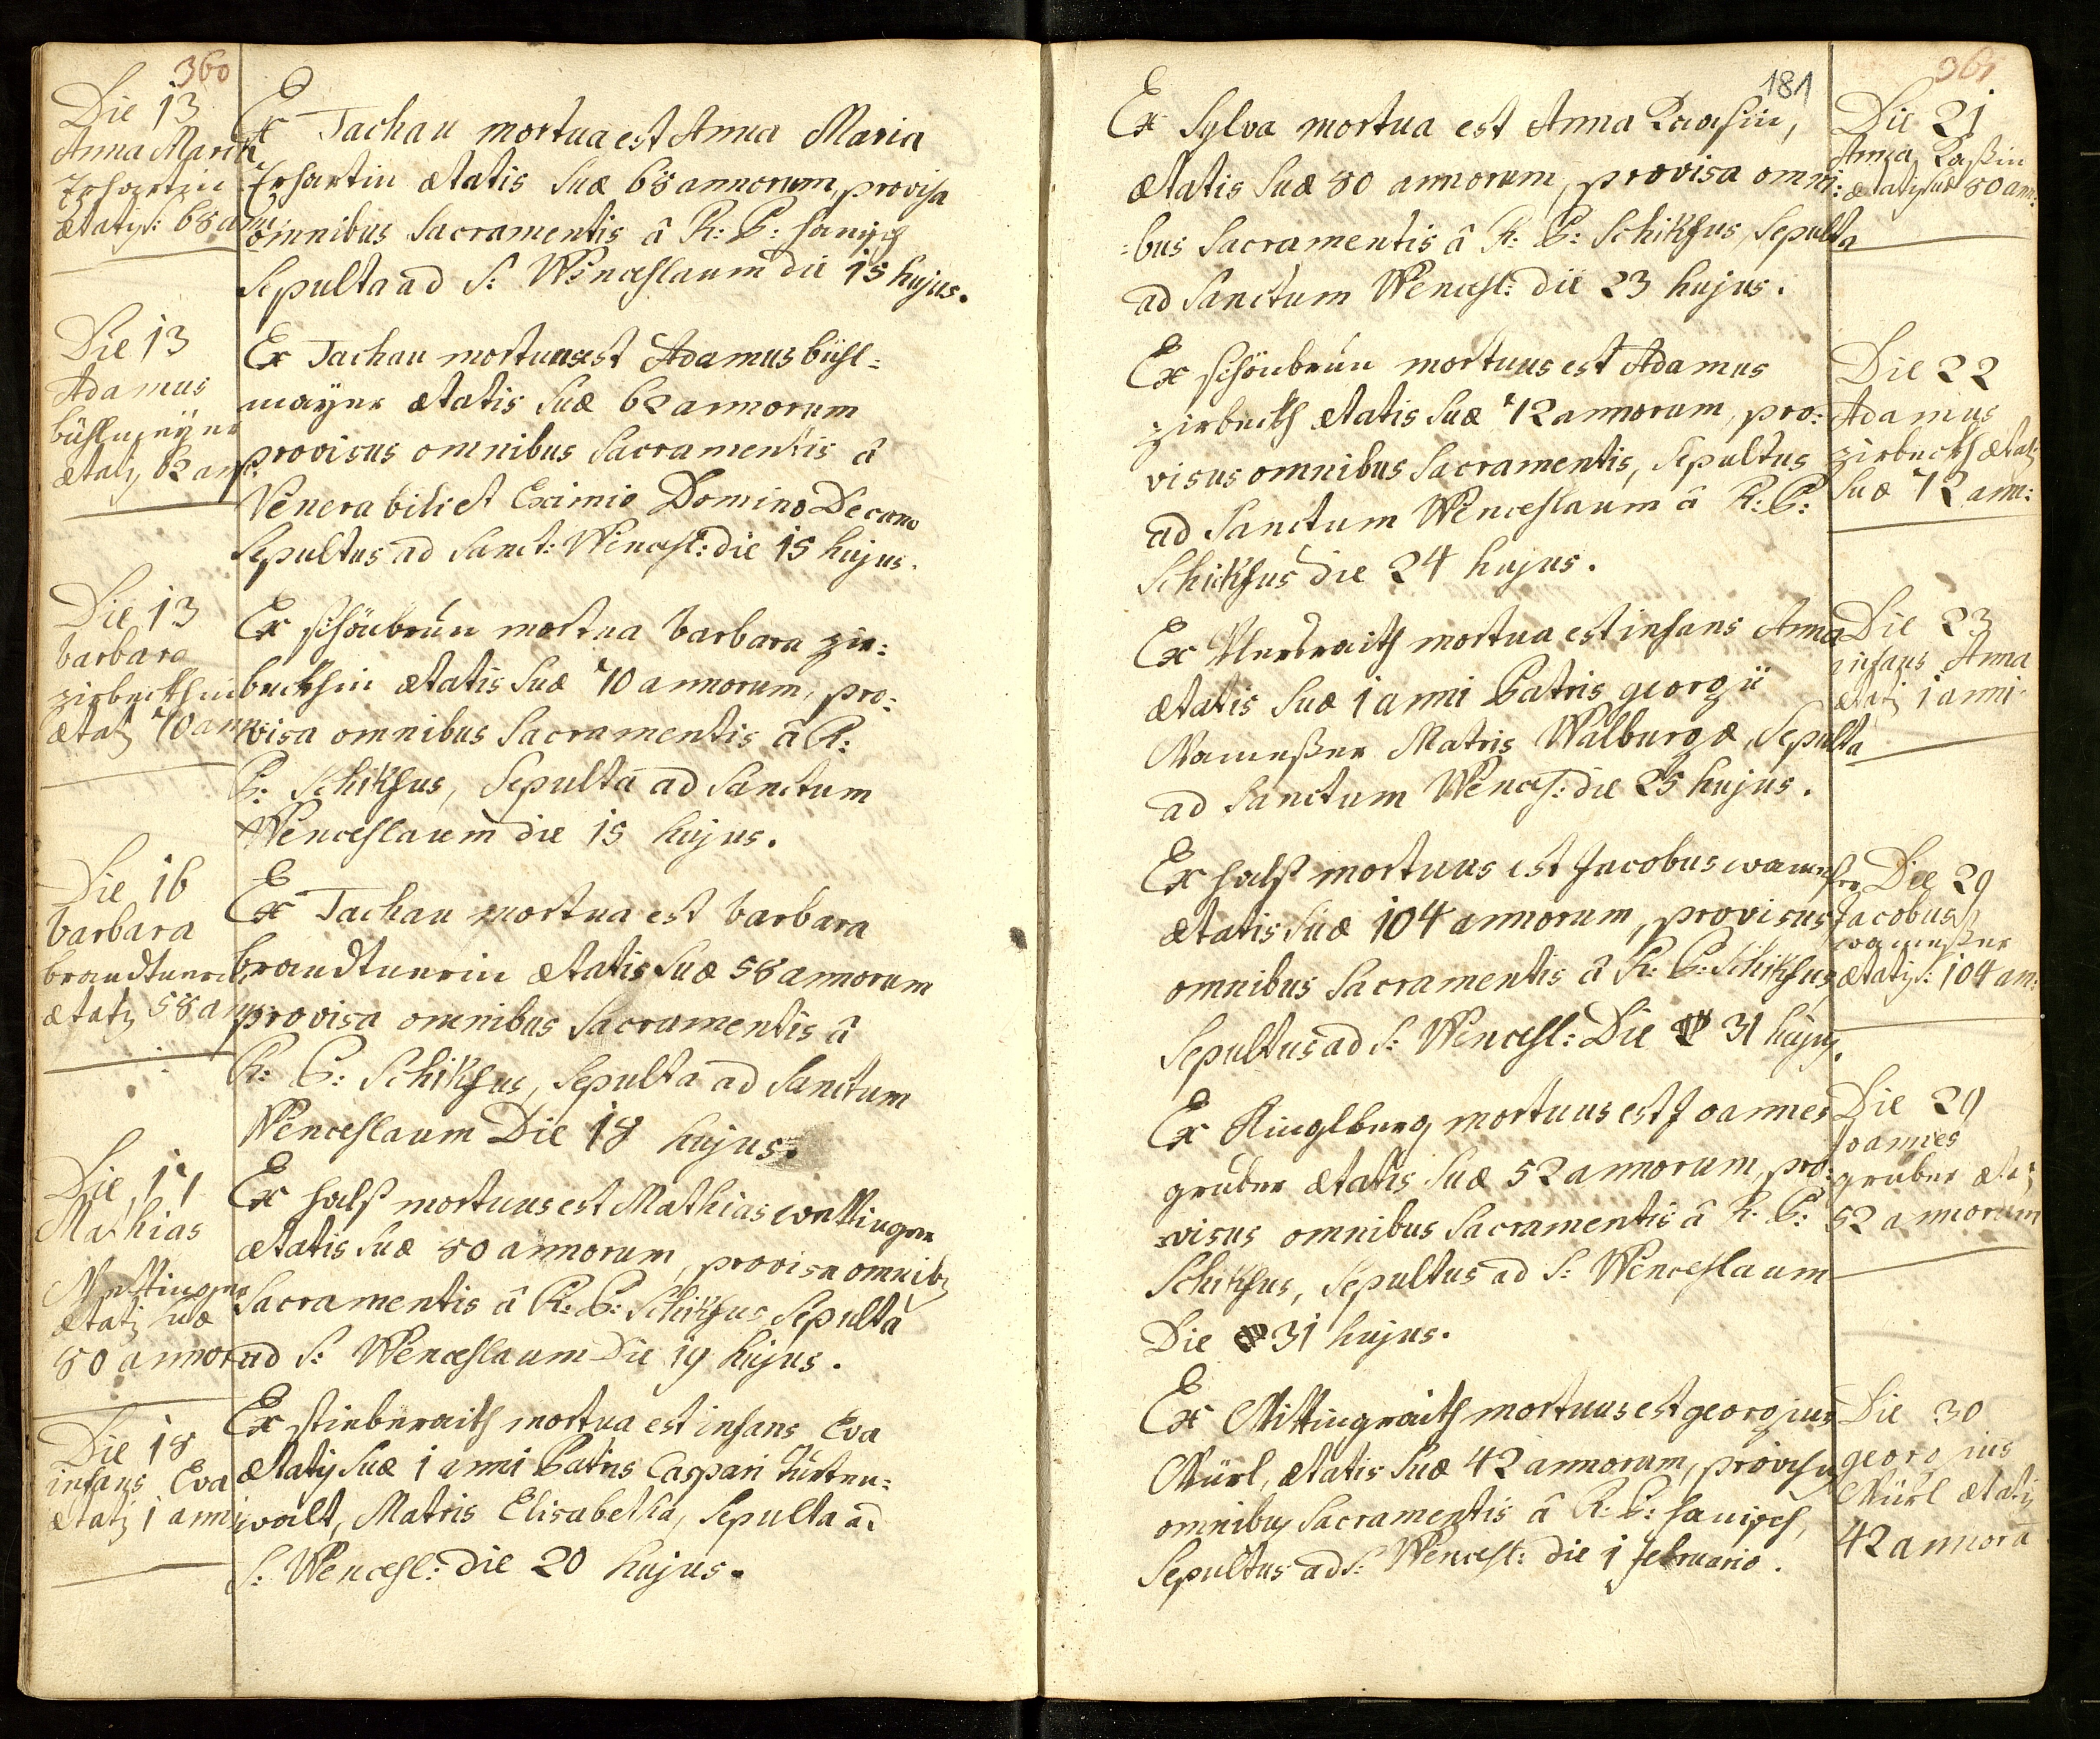 360
Die 13
Anna Maria
Erhartin
ætatis: 68 an:
Ex Tachau mortua est Anna Maria
Erhartin ætatis suæ 68 annorum, provisa
omnibus Sacramentis â R: P: Hanisch
Sepulta ad S: Wenceslaum die 15 hujus.
Die 13
Adamus
bühlmayer
ætatis 62 an:
Ex Tachau mortuus est Adamus bühl=
mayer ætatis suæ 62 annorum
provisus omnibus Sacramentis â
Venerabili et Eximio Domino Decano
Sepultus ad Sanct: Wencesl: die 15 hujus.
Die 13
barbara
zirbeckhin
ætatis 70 ann
Ex schönbrun mortua barbara zir=
beckhin ætatis suæ 70 annorum, pro=
visa omnibus Sacramentis â R:
P: Schikhus, Sepulta ad Sanctum
Wenceslaum die 15 hujus.
Die 16
barbara
brandtnerin
ætatis 58 an
Ex Tachau mortua est barbara
brandtnerin ætatis suæ 58 annorum
provisa omnibus Sacramentis â
R: P: Schikhus, Sepulta ad Sanctum
Wenceslaum Die 18 hujus.
Die 17
Mathias
Wettinger
ætatis suæ
80 annor
Ex Halß mortuus est Mathias wettinger
ætatis suæ 80 annorum, provisa omnibus
Sacramentis â R: P: Schikhus Sepulta
ad S: Wenceslaum Die 19 hujus.
Die 18
infans Eva
ætatis 1 anni
Ex stieberaith mortua est infans Eva
ætatis suæ 1 anni Patris Caspari
walt, Matris Elisabetha, Sepulta ad
S: Wencesl: die 20 hujus.
181
361
Ex Sylva mortua est Anna Raaßin,
ætatis suæ 80 annorum, provisa omni=
=bus Sacramentis â R: P: Schikhus, Sepulta
ad Sanctum Wencesl: die 23 hujus.
Die 21
Anna Raßin
ætatis suæ 80 an:
Ex schönbrun mortuus est Adamus
zirbeckh ætatis suæ 72 annorum, pro=
visus omnibus Sacramentis, Sepultus
ad Sanctum Wenceslaum â R: P:
Schikhus die 24 hujus.
Die 22
Adamus
zirbeckh ætatis
suæ 72 ann:
Ex mortua est infans Anna
ætatis suæ 1 anni Patris georgii
Wameßer Matris Walburgæ, Sepulta
ad Sanctum Wences: die 25 hujus.
Die 23
infans Anna
ætatis 1 anni
Ex Halß mortuus est Jacobus wameßer
ætatis suæ 104 annorum, provisus
omnibus Sacramentis â R: P: Schikhus,
Sepultus ad S: Wencesl: Die 31 hujus.
Die 29
Jacobus
wameßer
ætatis: 104 an:
Ex Ringlberg mortuus est Joannes
gruber ætatis suæ 52 annorum, pro=
=visus omnibus Sacramentis â R: P:
Schikhus, Sepultus ad S: Wenceslaum
Die 31 hujus.
Die 29
Joannes
gruber ætatis
52 annorum
Ex Wittingraith mortuus est georgius
Würl, ætatis suæ 42 annorum, provisus
omnibus Sacramentis â R: P: Hanisch,
Sepultus ad S: Wencesl: die 1 februario.
Die 30
georgius
Würl ætatis
42 annorū